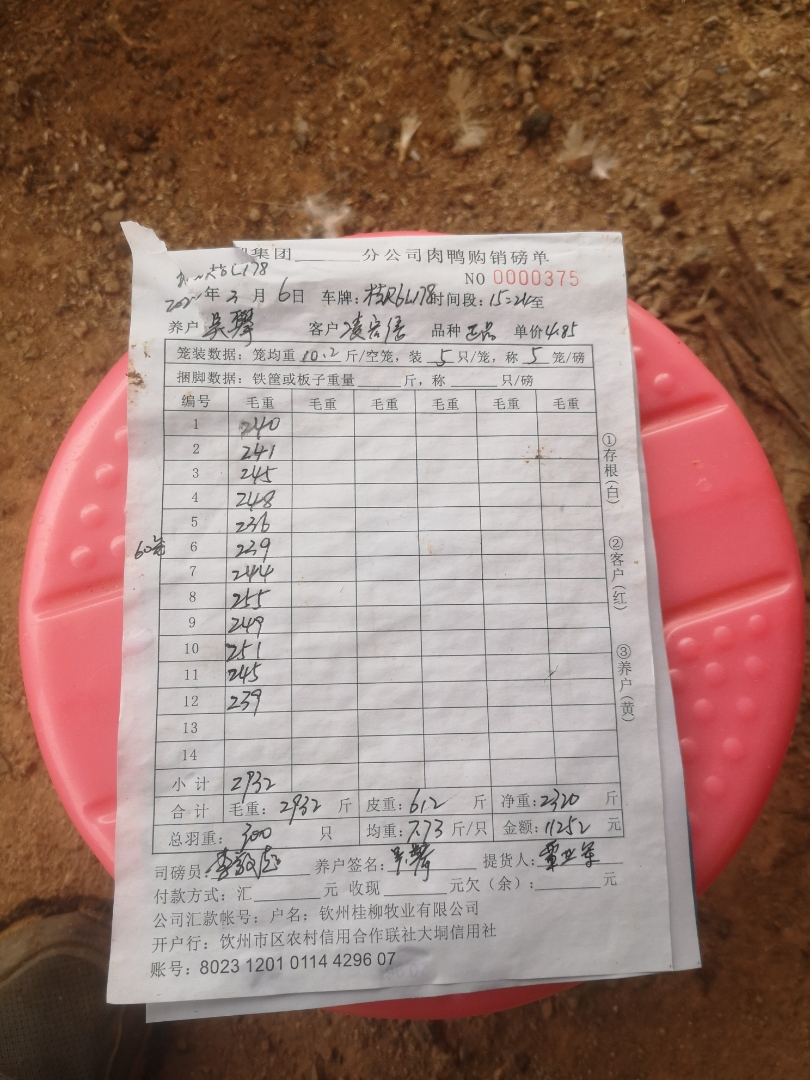 集团______分公司肉鸭购销磅单
NO 0000375
年 3 月 6 日 车牌：桂R6L178 时间段：15:24至
养户 吴 客户 凌 品种 正品 单价 4.85
笼装数据：笼均重 10.2 斤/空笼，装 5 只/笼，称 5 笼/磅
捆脚数据：铁筐或板子重量______斤，称______只/磅
编号 毛重 毛重 毛重 毛重 毛重 毛重
1 240
2 241
3 245
4 248
5 236
60笼 6 239
7 244
8 255
9 249
10 251
11 245
12 239
13
14
小计 2932
合计 毛重：2932 斤 皮重：612 斤 净重：2320 斤
总羽重：300 只 均重：7.73 斤/只 金额：11252 元
司磅员：李 养户签名： 提货人：覃
付款方式：汇______元 收现______元欠（余）：______元
公司汇款帐号：户名：钦州桂柳牧业有限公司
开户行：饮州市区农村信用合作联社大垌信用社
账号：8023 1201 0114 4296 07
①存根（白）
②客户（红）
③养户（黄）